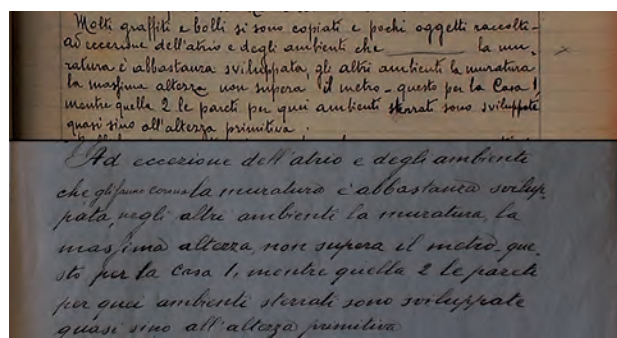 Molti graffiti e bolli si sono copiati e pochi oggetti raccolti-
ad eccezione dell'atrio e degli ambienti che la mu-
ratura è abbastanza sviluppata, gli altri ambienti la muratura
la massima altezza non supera il metro - questo per la Casa 1,
mentre quella 2 le pareti per quei ambienti sterrati sono sviluppate
quasi sino all'altezza primitiva.
Ad eccezione dell'atrio e degli ambienti
che la muratura è abbastanza svilup-
pata, negli altri ambienti la muratura, la
massima altezza, non supera il metro - que-
sto per la Casa 1, mentre quella 2 le pareti
per quei ambienti sterrati sono sviluppate
quasi sino all'altezza primitiva